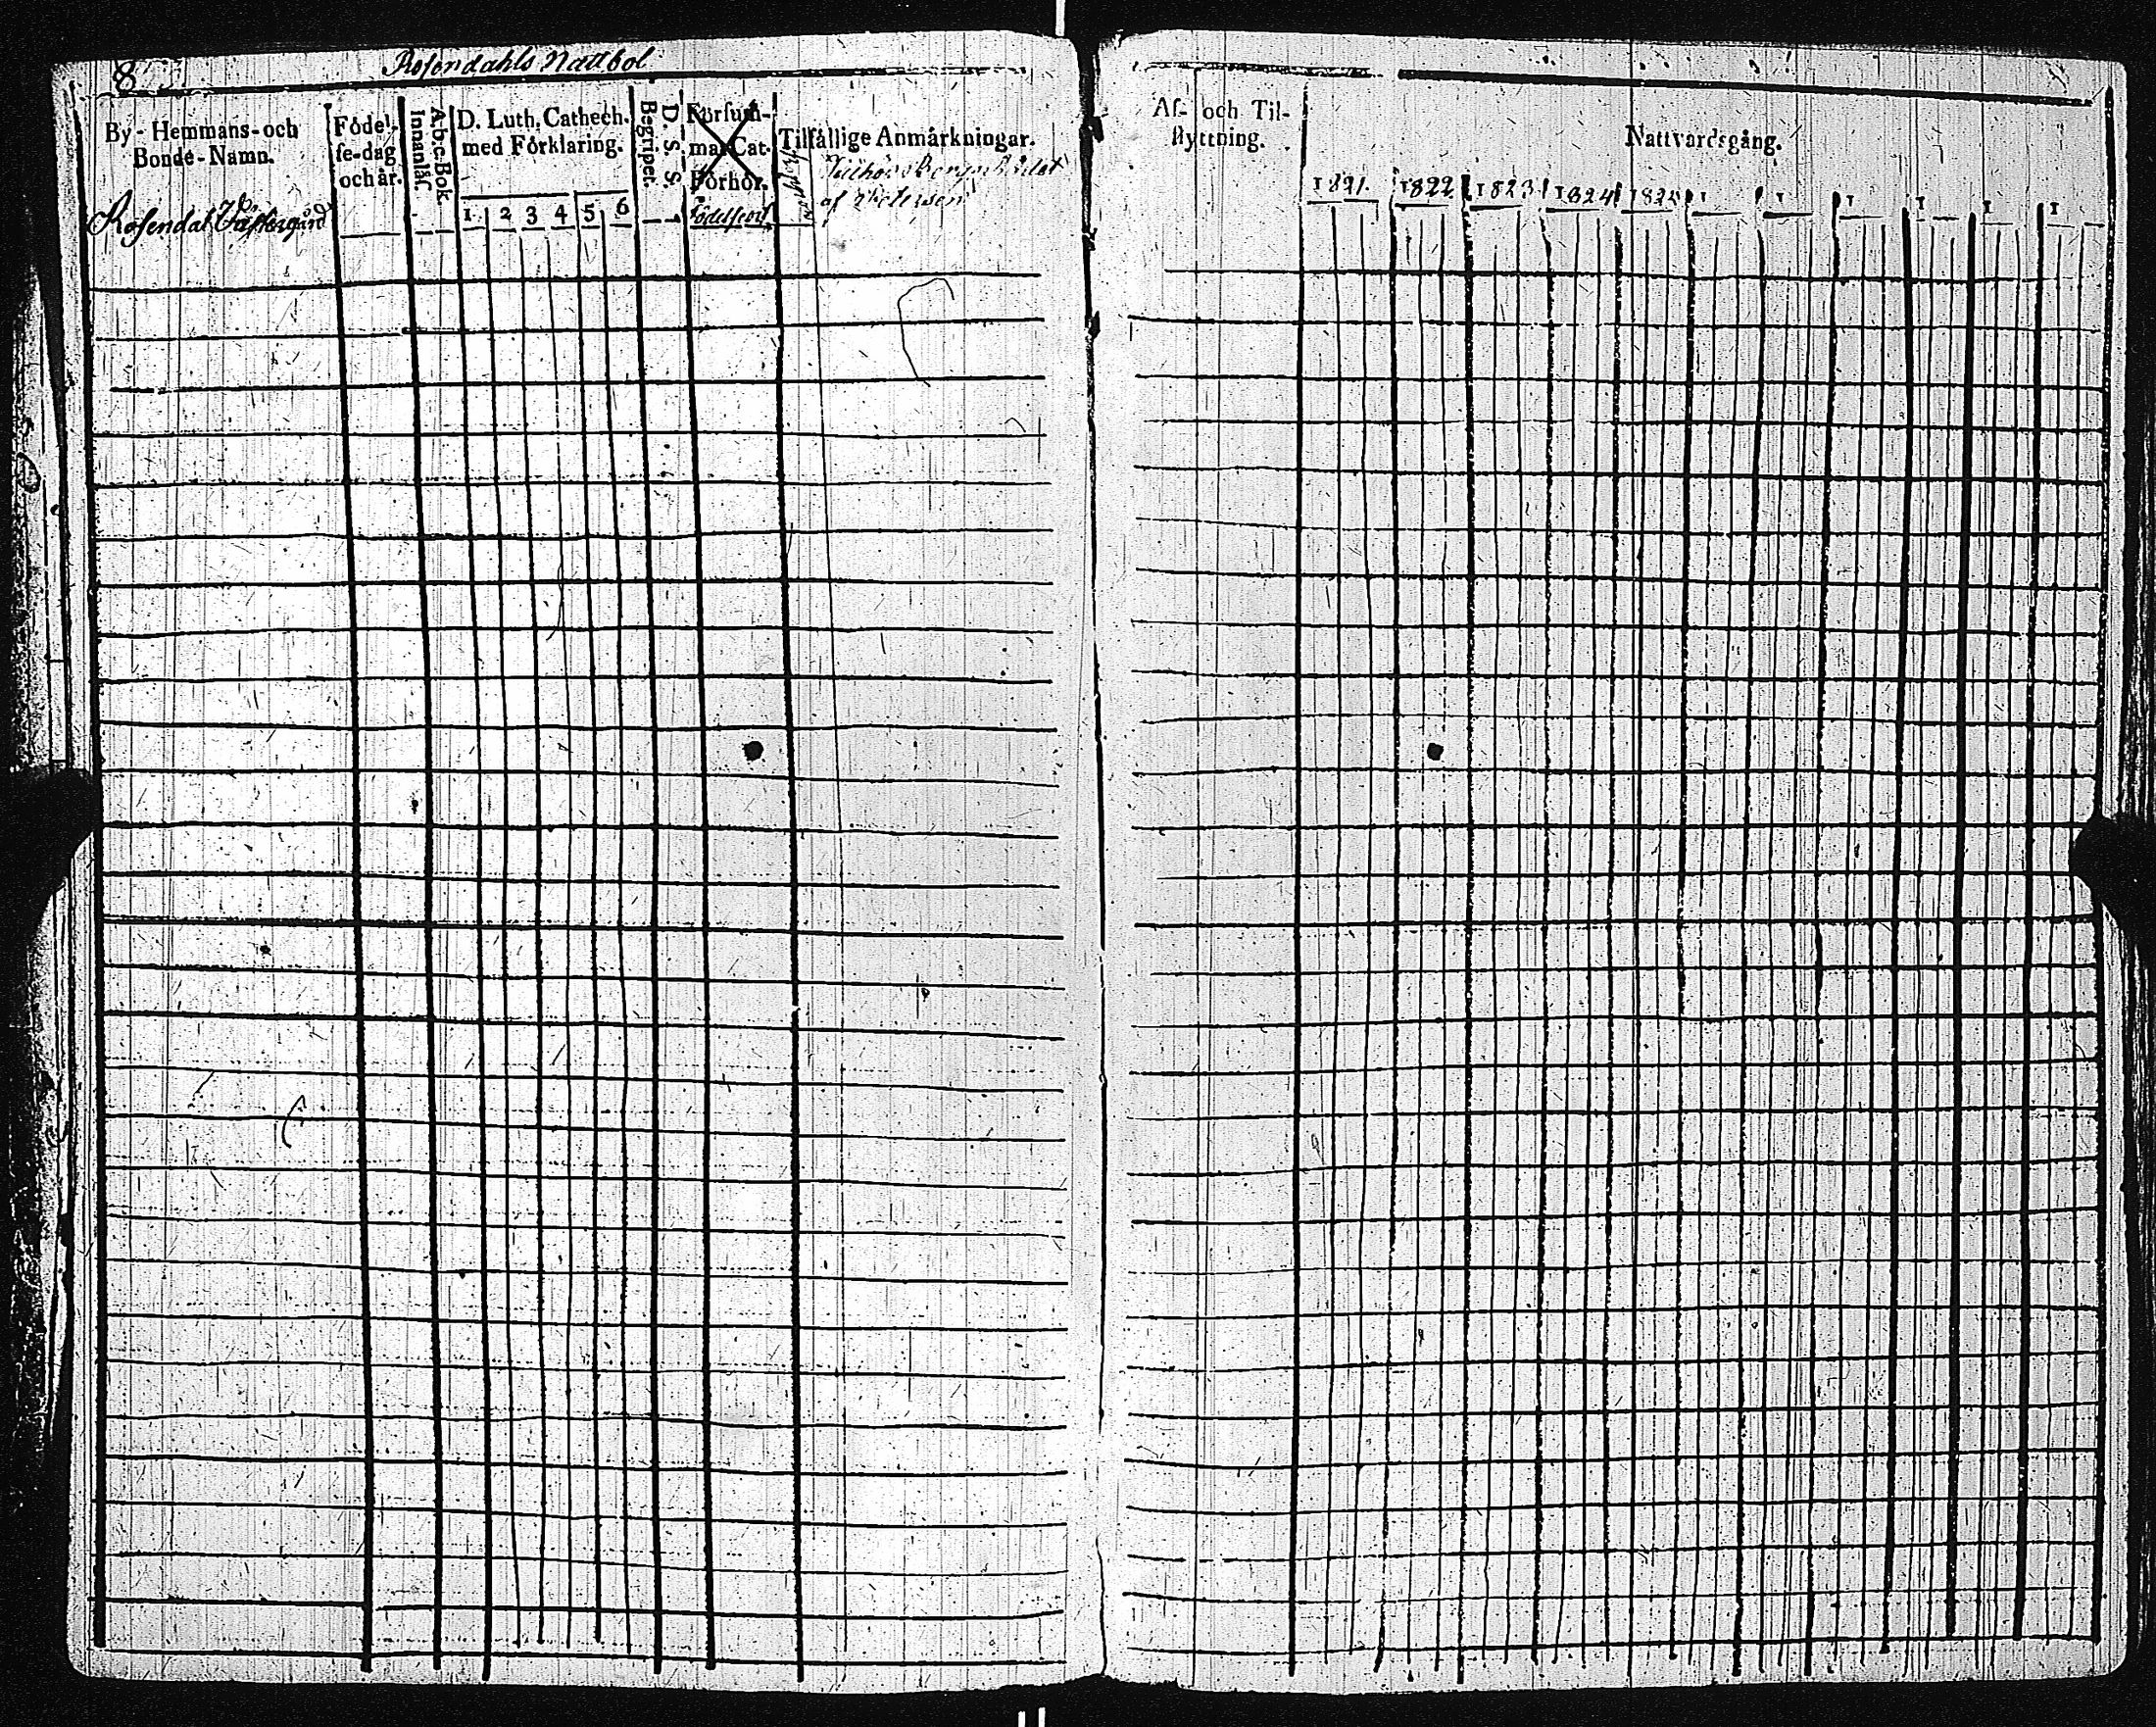 8
Rosendahls Nattbol
By- Hemmans- och
Bonde-Namn.
Födel-
se-dag
och år.
A.b.c. Bok
Innanläs.
D. Luth. Cathech.
med Förklaring.
1. 2 3 4 5 6
D. S. S.
Begripet.
Försum-
ma Cat.
Förhör.
födelseort
Tilfällige Anmärkningar.
af Petersen
Rosendal Västergård
Af- och Til-
flyttning.
Nattvardsgång.
1821. 1822 1823 1824 1825 1 1 1 1 1 1